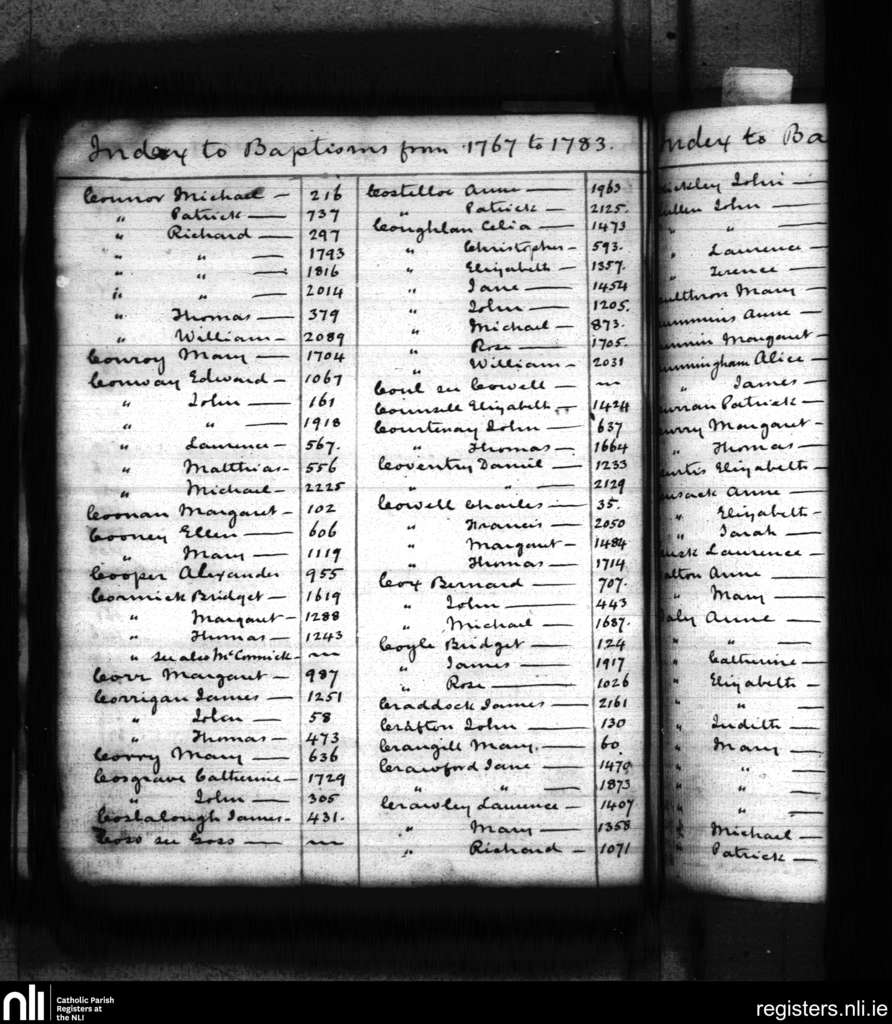 Index to Baptisms from 1767 to 1783.
Connor Michael — 216
" Patrick — 737
" Richard — 297
" " — 1793
" " — 1816
" " — 2014
" Thomas — 379
" William — 2089
Conroy Mary — 1704
Conway Edward — 1067
" John — 161
" " — 1918
" Laurence — 567.
" Matthias — 556
" Michael — 2225
Coonan Margaret — 102
Cooney Ellen — 606
" Mary — 1119
Cooper Alexander 955
Cormick Bridget — 1619
" Margaret — 1288
" Thomas — 1243
" see also McCormick —
Corr Margaret — 987
Corrigan James — 1251
" John — 58
" Thomas — 473
Corry Mary — 636
Cosgrave Catherine — 1729
" John — 305
Coslalough James — 431.
Coss see Goss —
Costelloe Anne — 1963
" Patrick — 2125.
Coughlan Celia — 1473
" Christopher — 593.
" Elizabeth — 1357.
" Jane — 1454
" John — 1205.
" Michael — 873.
" Rose — 1705.
" William — 2031
Coul see Cowell —
Counsell Elizabeth 1424
Courtenay John — 637
" Thomas — 1664
Coventry Daniel — 1233
" " — 2129
Cowell Charles — 35.
" Francis — 2050
" Margaret — 1484
" Thomas — 1714
Cox Bernard — 707.
" John — 443
" Michael — 1687.
Coyle Bridget — 124
" James — 1917
" Rose — 1026
Craddock James — 2161
Crafton John — 130
Crangill Mary. — 60.
Crawford Jane — 1470
" " — 1873
Crawley Laurence — 1407
" Mary — 1358
" Richard — 1071
ndex to Ba
ickley John —
ullen John —
" " —
" Laurence —
" Terence —
ulthron Mary —
ummins Anne —
unnin Margaret —
unningham Alice —
" James —
urran Patrick —
urry Margaret —
" Thomas —
urtis Elizabeth —
usack Anne —
" Elizabeth —
" Sarah —
usick Laurence —
alton Anne —
" Mary —
aly Anne —
" " —
" Catherine —
" Elizabeth —
" " —
" Judith —
" Mary —
" " —
" " —
" " —
" Michael —
" Patrick —
nli
Catholic Parish
Registers at
the NLI
registers.nli.ie